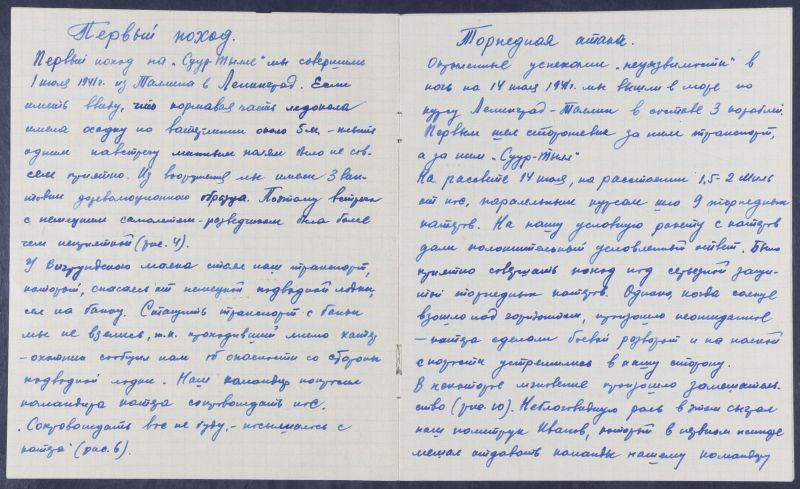 Первый поход.
Первый поход на „Суур-Тылл" мы совершили
1 июля 1941г. из Таллина в Ленинград. Если
иметь ввиду, что кормовая часть ледокола
имела осадку по ватерлинии около 5м, - плыть
одним навстречу минным полям было не сов-
сем приятно. Из вооружения мы имели 3 вин-
товки дореволюционного образца. Поэтому встреча
с немецким самолетом-разведчиком была более
чем неприятной (рис. 4).
У маяка стоял наш транспорт,
который, спасаясь от немецкой подводной лодки,
сел на банку. Стащить транспорт с банки
мы не взялись, т.к. проходивший мимо катер
-охотник сообщил нам об опасности со стороны
подводной лодки. Наш командир попросил
командира катера сопровождать нас.
„Сопровождать вас не буду, - послышалось с
катера" (рис. 6).
Торпедная атака.
Окрыленные успехами „неуязвимости" в
ночь на 14 июля 1941г. мы вышли в море по
курсу Ленинград-Таллин в составе 3 кораблей.
Первым шел сторожевик за ним транспорт,
а за ним „Суур-Тылл"
На рассвете 14 июля, на расстоянии 1,5-2 миль
от нас, параллельным курсом шло 9 торпедных
катеров. На нашу условную ракету с катеров
дали положительный условленный ответ. Было
приятно совершать поход под серьезной защи-
той торпедных катеров. Однако, когда солнце
взошло над горизонтом, произошло неожиданное
- катера сделали боевой разворот и на полной
скорости устремились в нашу сторону.
В некоторое мгновение произошло замешатель-
ство (рис. 10). Неблаговидную роль в этом сыграл
наш политрук Иванов, который в нервном
мешал отдавать команды нашему командиру